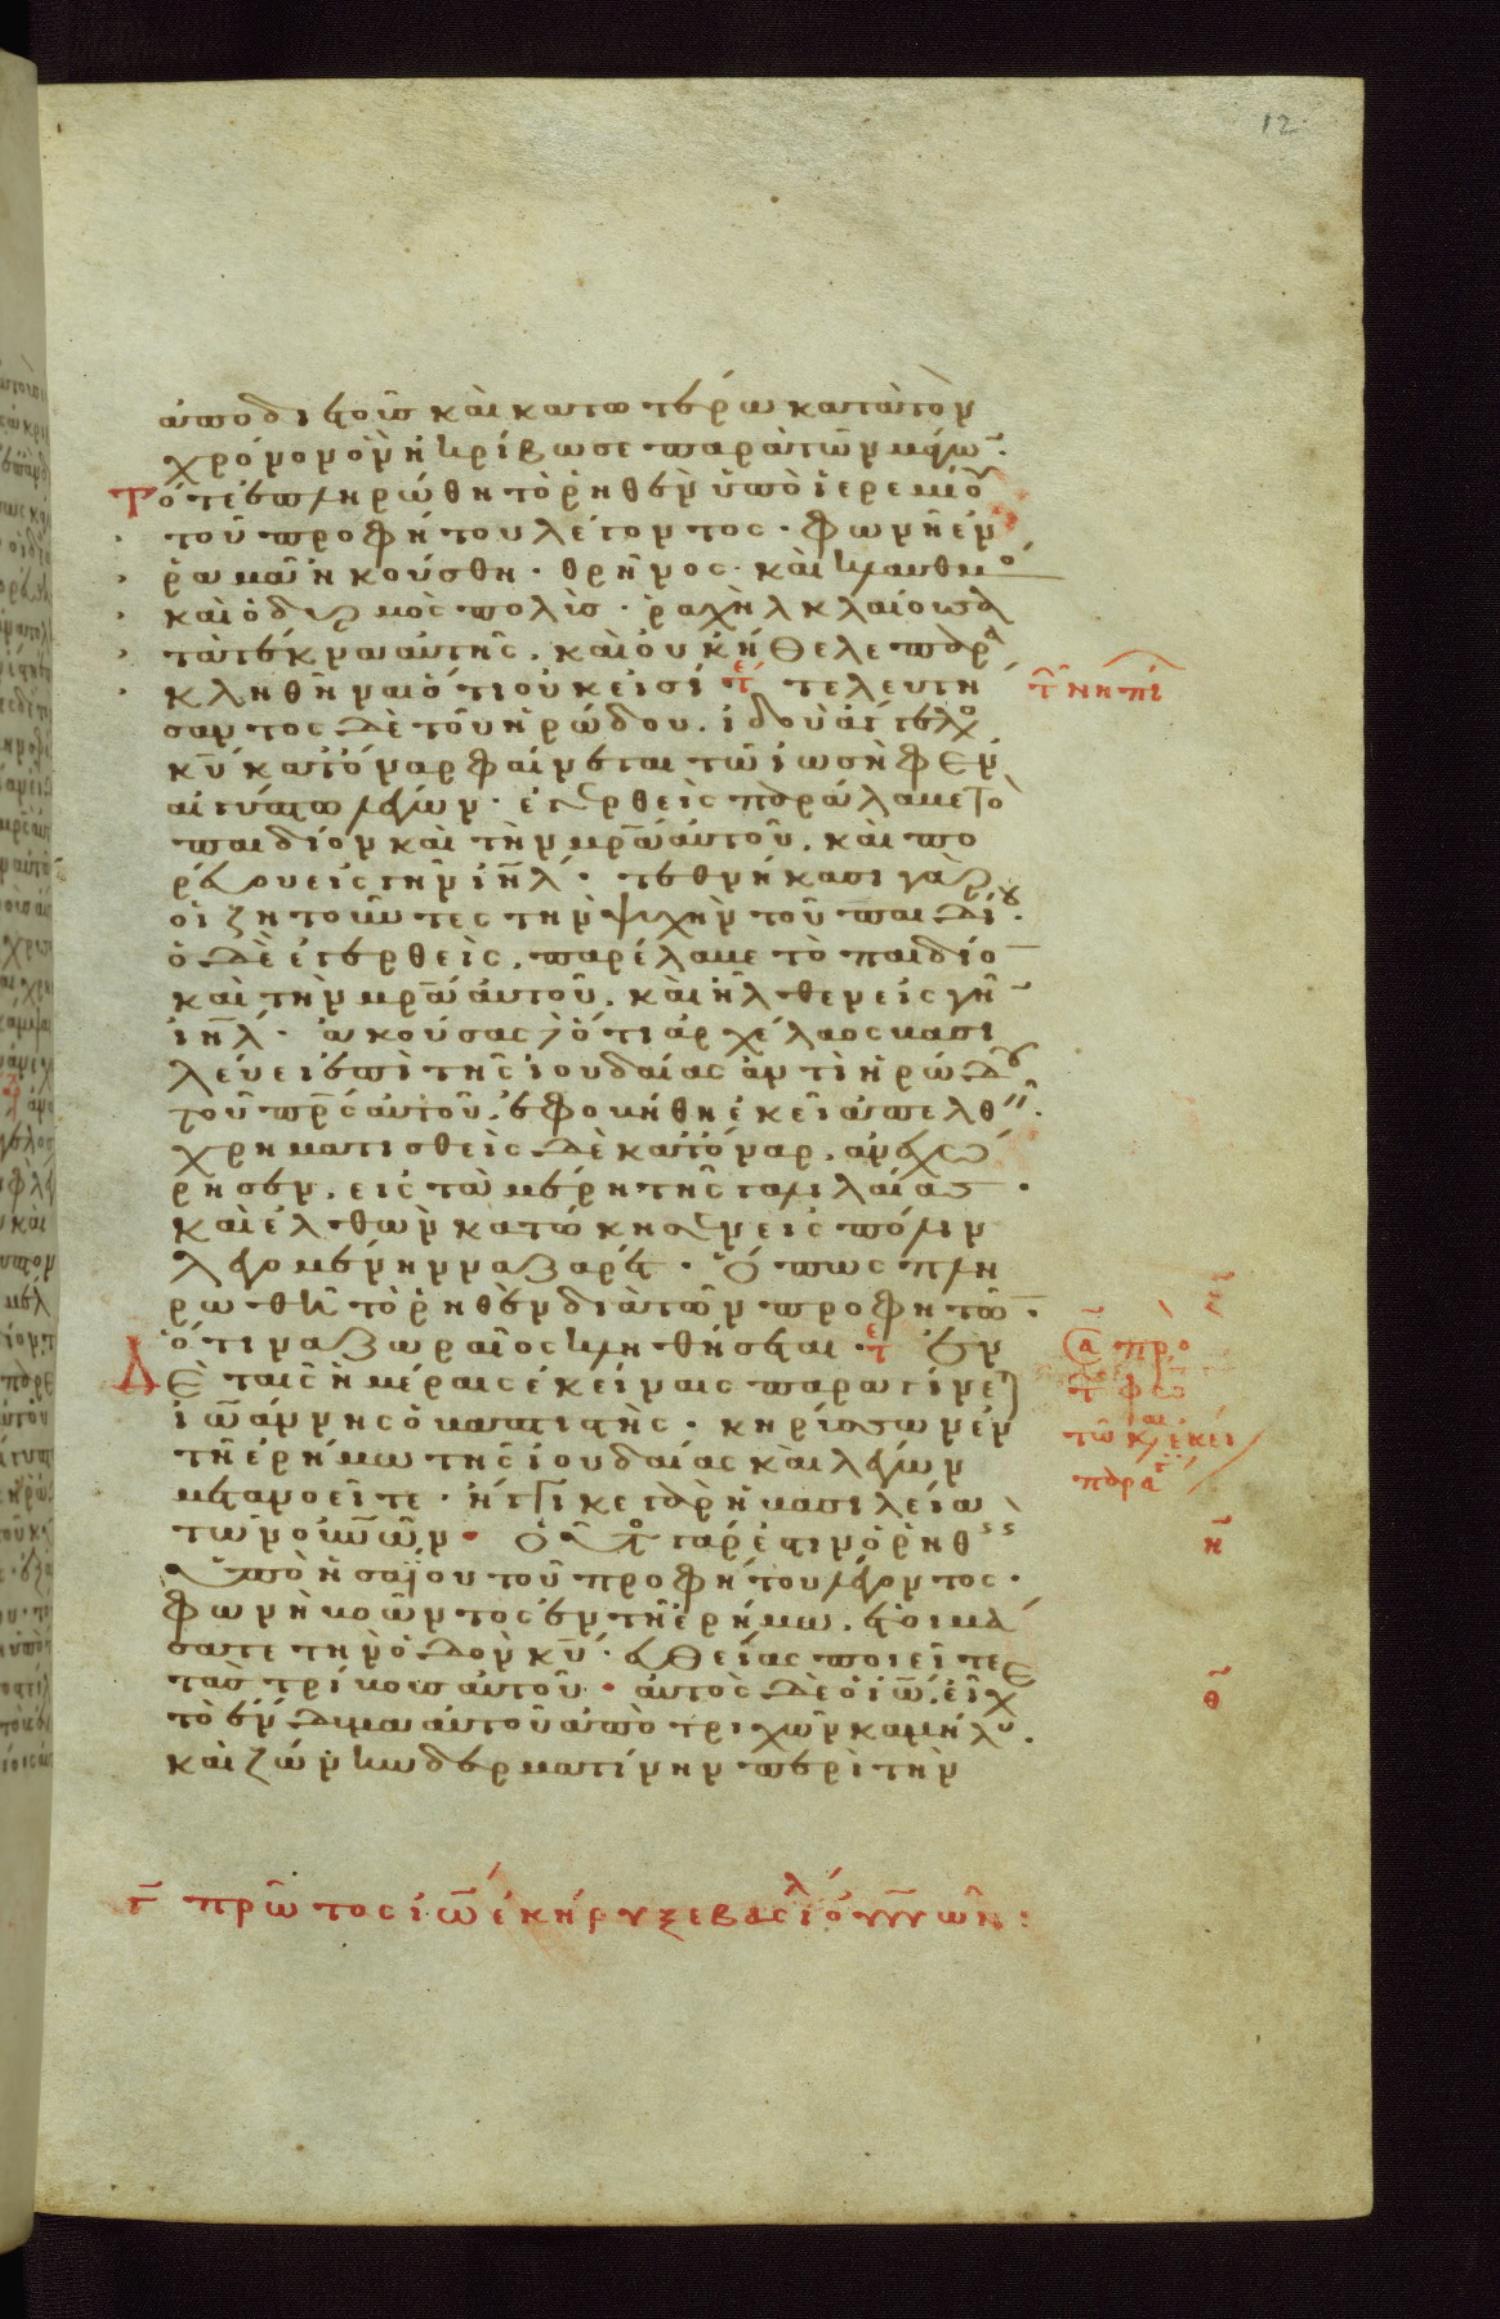 12
ἀπὸ διετοῦς καὶ κατωτέρω κατὰ τὸν
χρόνον ὃν ἠκρίβωσε παρὰ τῶν μάγω̄.
Τότε ἐπληρώθη τὸ ῥηθὲν ὑπὸ ἱερεμίου
τοῦ προφήτου λέγοντος. φωνὴ ἐν
ῥαμᾶ ἠκούσθη. θρῆνος. καὶ κλαυθμὸ
καὶ ὀδυρμὸς πολὺς. ῥαχὴλ κλαίουσα
τὰ τέκνα αὐτῆς. καὶ οὐκ ἤθελε παρα
κληθῆναι ὅτι οὐκ εἰσί τε τελευτή
τ̂ νηπί
σαντος δὲ τοῦ ἡρώδου. ἰδοὺ ἄγγελο
κ̄υ κατόναρ φαίνεται τῶ ἰωσὴφ ἐν
αἰγύπτω λέγων. ἐγερθεὶς παράλαβε τὸ
παιδίον καὶ τὴν μρ̄α αὐτοῦ. καὶ πο
ρεύου εἰς γῆν ἰη̄λ. τεθνήκασι γὰρ
οἱ ζητοῦντες τὴν ψυχὴν τοῦ παιδίου.
ὁ δὲ ἐγερθεὶς. παρέλαβε τὸ παιδίο̄
καὶ τὴν μρ̄α αὐτοῦ. καὶ ἦλθεν εἰς γῆ̄
ἰη̄λ. ἀκούσας δὲ ὅτι ἀρχέλαος βασι
λεύει ἐπὶ τῆς ἰουδαίας ἀντὶ ἡρώδου
τοῦ πρ̄ς αὐτοῦ. ἐφοβήθη ἐκεῖ ἀπελθεῖν.
χρηματισθεὶς δὲ κατόναρ. ἀνεχώ
ρησεν. εἰς τὰ μέρη τῆς γαλιλαίας.
καὶ ἐλθὼν κατώκησεν εἰς πόλιν
λεγομένην ναζαρέτ. ὅπως πλη
ρωθῆ τὸ ῥηθὲν διὰ τῶν προφητῶ̄.
ὅτι ναζωραῖος κληθήσεται. τε Ἐν
ᾱ προ
Δὲ ταῖς ἡμέραις ἐκείναις παραγίνε
τ φω
ἰωάννης ὁ βαπτιστὴς. κηρύσσων ἐν
τῶ κ ἐκεί
τῆ ἐρήμω τῆς ἰουδαίας καὶ λέγων
παρα
μετανοεῖτε. ἤγγικε γὰρ ἡ βασιλεία
τῶν οὐν̄ῶν. οὗτος γάρ ἐστιν ὁ ῥηθεὶς
η̄
ὑπὸ ἠσαΐου τοῦ προφήτου λέγοντος.
φωνὴ βοῶντος ἐν τῆ ἐρήμω. ἑτοιμά
σατε τὴν ὁδὸν κ̄υ. εὐθείας ποιεῖτε
τὰς τρίβους αὐτοῦ. αὐτὸς δὲ ὁ ἰω̄. εἶχε
θ̄
τὸ ἔνδυμα αὐτοῦ ἀπὸ τριχῶν καμήλου.
καὶ ζώνην δερματίνην περὶ τὴν
γ̄ πρῶτος ἰω̄ ἐκήρυξε βασιλ οὐνῶν: